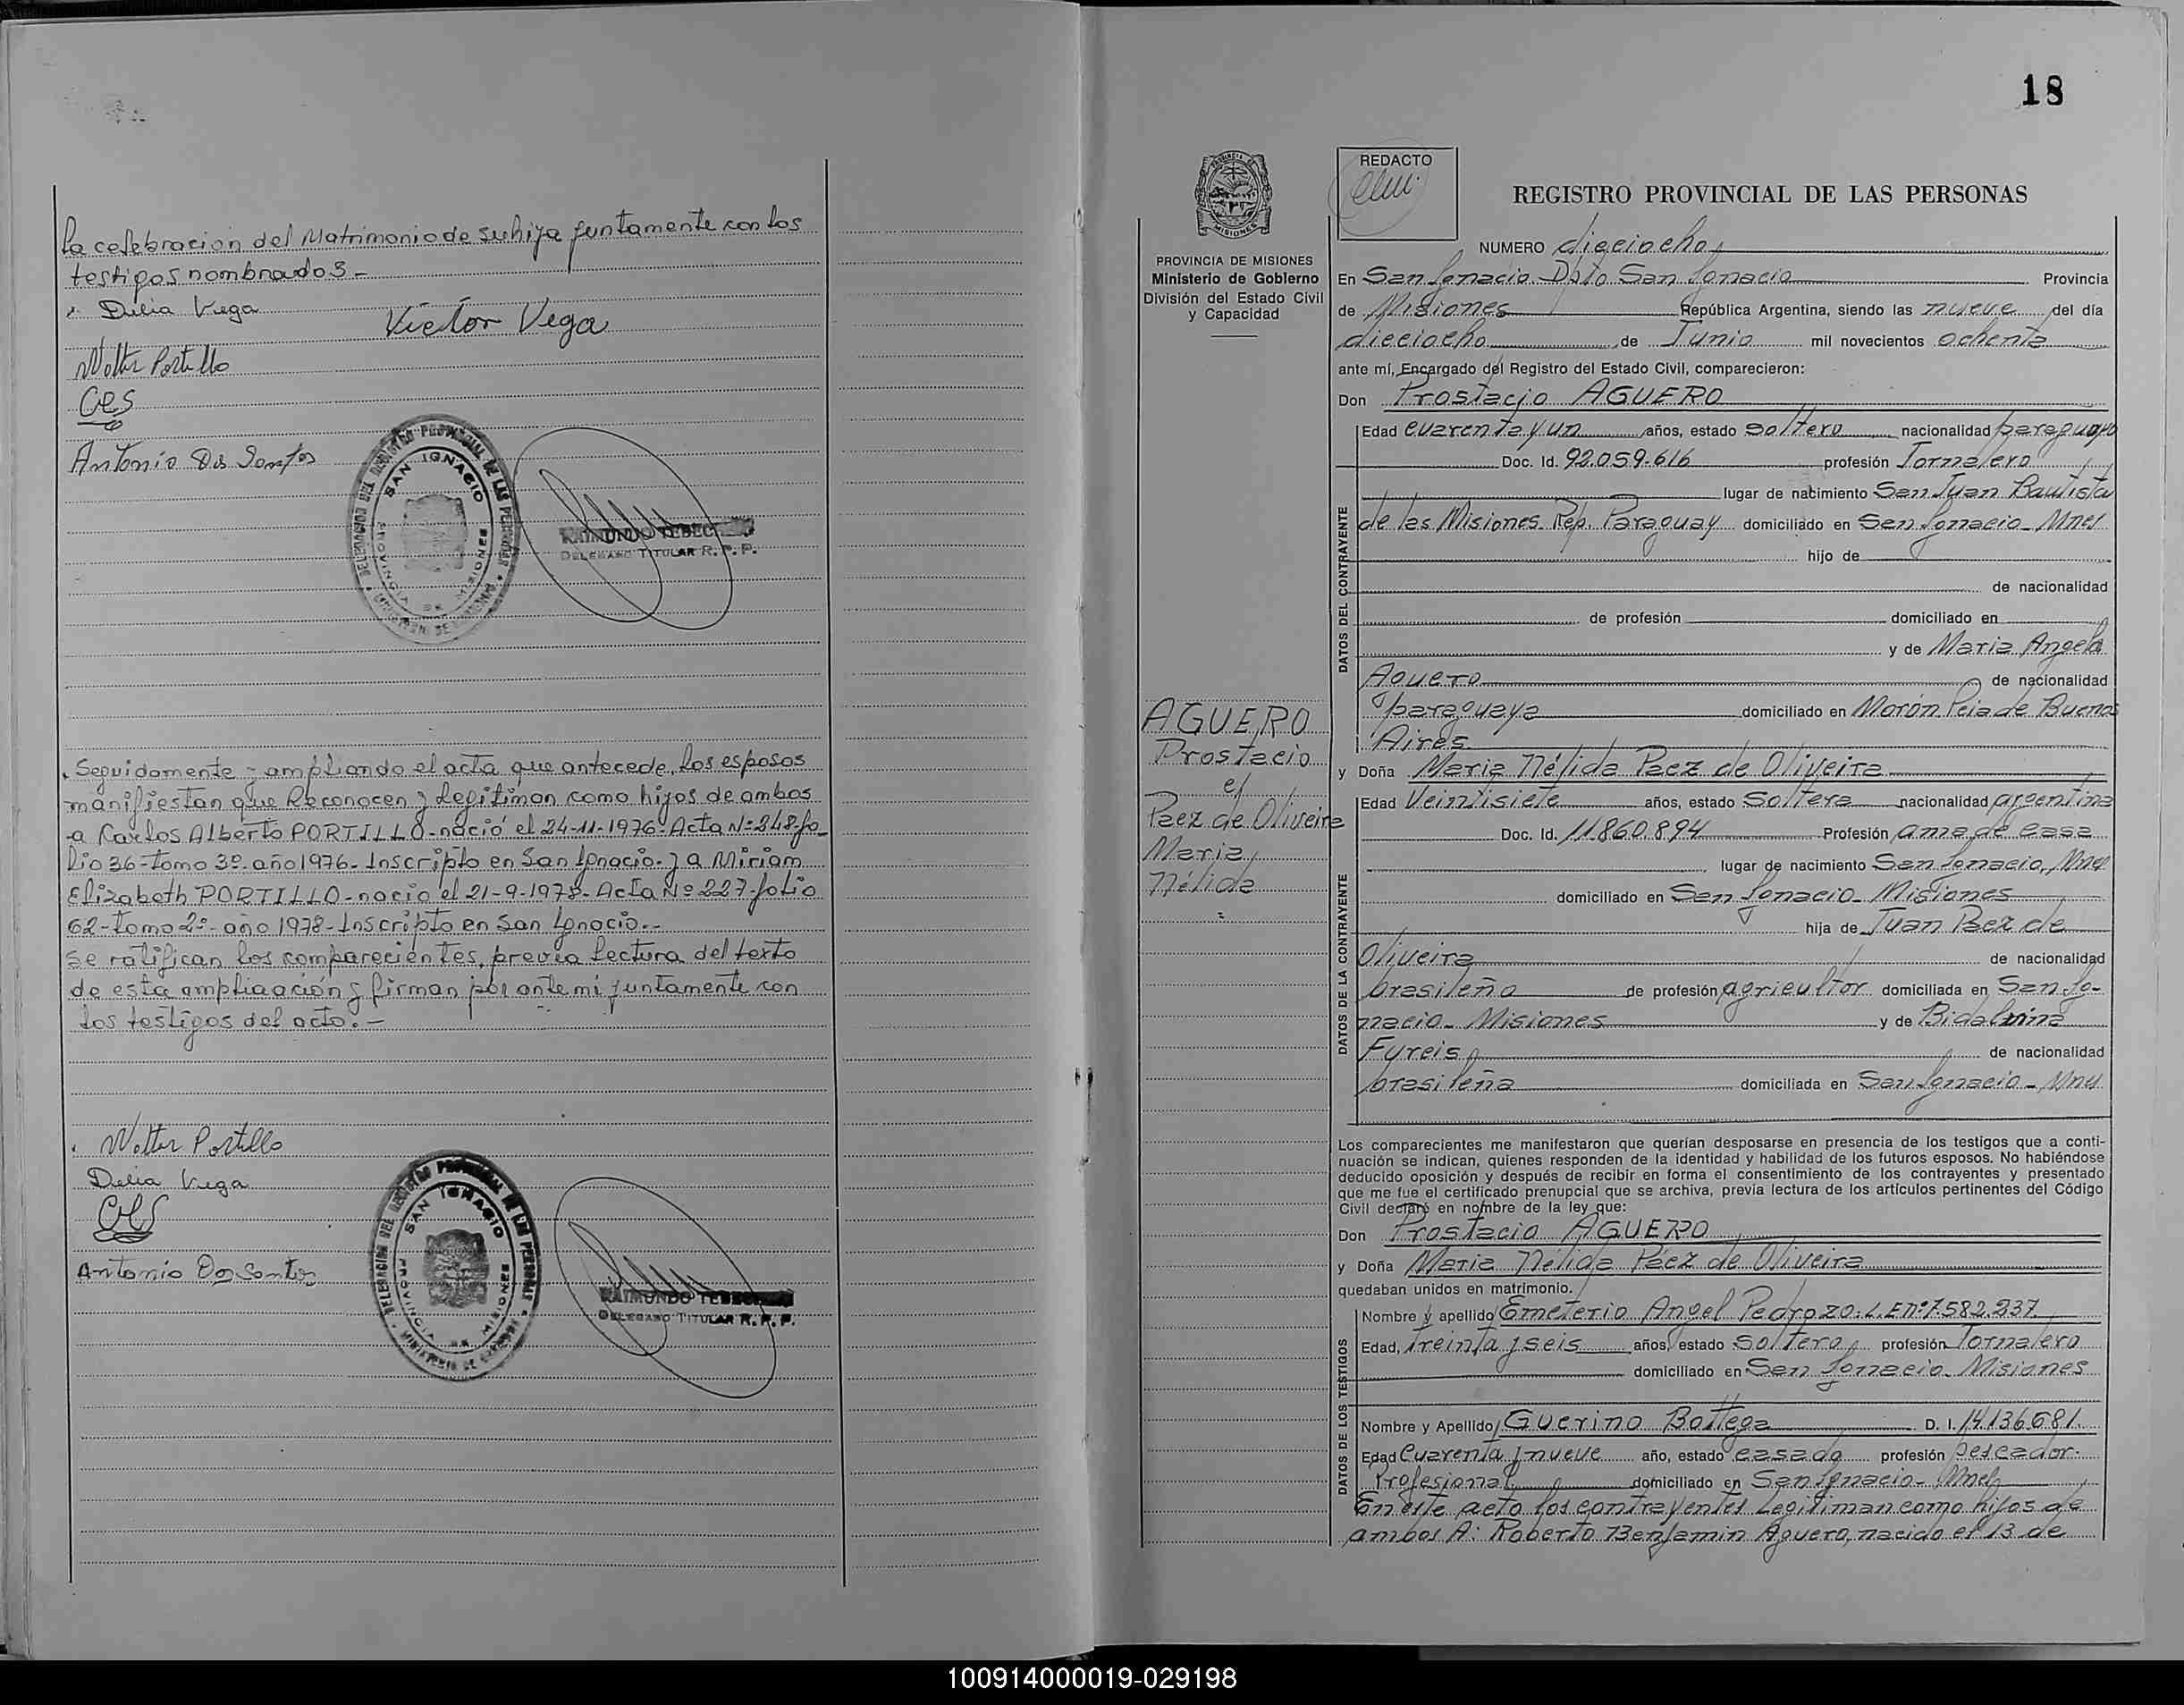 la celebracion del Matrimonio de su hija juntamente con los
testigos nombrados -
Delia Vega
Victor Vega
Walter Portillo
Antonio Dos Santos
DELEGACION DEL REGISTRO PROVINCIAL DE LAS PERSONAS
SAN IGNACIO
PROVINCIA DE MISIONES
DELEGADO TITULAR R. P. P.
Seguidamente y ampliando el acta que antecede, los esposos
manifiestan que Reconocen y Legitiman como hijos de ambos
a Carlos Alberto PORTILLO - nació el 24-11-1976- Acta Nº 348- fo_
lio 36 - tomo 3º- año 1976 - Inscripto en San Ignacio- y a Miriam
Elizabeth PORTILLO - nacio el 21-9-1978- Acta Nº 227- folio
62 - tomo 2º- año 1978 - Inscripto en San Ignacio.-
Se ratifican los comparecientes, previa lectura del texto
de esta ampliaación y firman por ante mi juntamente con
los testigos del acto.-
Walter Portillo
Delia Vega
Antonio Dos Santos
DELEGACION DEL REGISTRO PROVINCIAL DE LAS PERSONAS
SAN IGNACIO
PROVINCIA DE MISIONES
RAIMUNDO
DELEGADO TITULAR R. P. P.
18
MISIONES
PROVINCIA DE MISIONES
Ministerio de Gobierno
División del Estado Civil
y Capacidad
AGUERO
Prostacio
Paez de Oliveira
Maria
Nélida
REDACTO
REGISTRO PROVINCIAL DE LAS PERSONAS
NUMERO dieciocho
En San Ignacio. Dpto San Ignacio Provincia
de Misiones República Argentina, siendo las nueve del día
dieciocho de Junio mil novecientos ochenta
ante mí, Encargado del Registro del Estado Civil, comparecieron:
Don Prostacio AGUERO
DATOS DEL CONTRAYENTE
Edad cuarenta y un años, estado soltero nacionalidad paraguayo
Doc. Id. 92.059.616 profesión Jornalero
lugar de nacimiento San Juan Bautista
de las Misiones. Rep. Paraguay domiciliado en San Ignacio - Mnes
hijo de
de nacionalidad
de profesión domiciliado en
y de Maria Angela
Aguero de nacionalidad
paraguaya domiciliado en Morón Pcia de Buenos
Aires
y Doña Maria Nélida Paez de Oliveira
DATOS DE LA CONTRAYENTE
Edad Veintisiete años, estado Soltera nacionalidad argentina
Doc. Id. 11.860.894 Profesión ama de casa
lugar de nacimiento San Ignacio, Mnes
domiciliado en San Ignacio - Misiones
hija de Juan Paez de
Oliveira de nacionalidad
brasileño de profesión agricultor domiciliada en San Ig-
nacio - Misiones y de Bidalvina
Fyreis de nacionalidad
brasileña domiciliada en San Ignacio - Mnes
Los comparecientes me manifestaron que querían desposarse en presencia de los testigos que a conti-
nuación se indican, quienes responden de la identidad y habilidad de los futuros esposos. No habiéndose
deducido oposición y después de recibir en forma el consentimiento de los contrayentes y presentado
que me fue el certificado prenupcial que se archiva, previa lectura de los artículos pertinentes del Código
Civil declaré en nombre de la ley que:
Don Prostacio AGUERO
y Doña Maria Nélida Paez de Oliveira
quedaban unidos en matrimonio.
DATOS DE LOS TESTIGOS
Nombre y apellido Emeterio Angel Pedrozo: L.E nº 7.582.237
Edad, treinta y seis años, estado soltero profesión Jornalero
domiciliado en San Ignacio - Misiones
Nombre y Apellido Guerino Bottega D. I. 14.136.681
Edad Cuarenta y nueve año, estado casado profesión pescador
Profesional domiciliado en San Ignacio - Mnes
En este acto los contrayentes Legitiman como hijos de
ambos A: Roberto Benjamin Aguero, nacido el 13 de
100914000019-029198